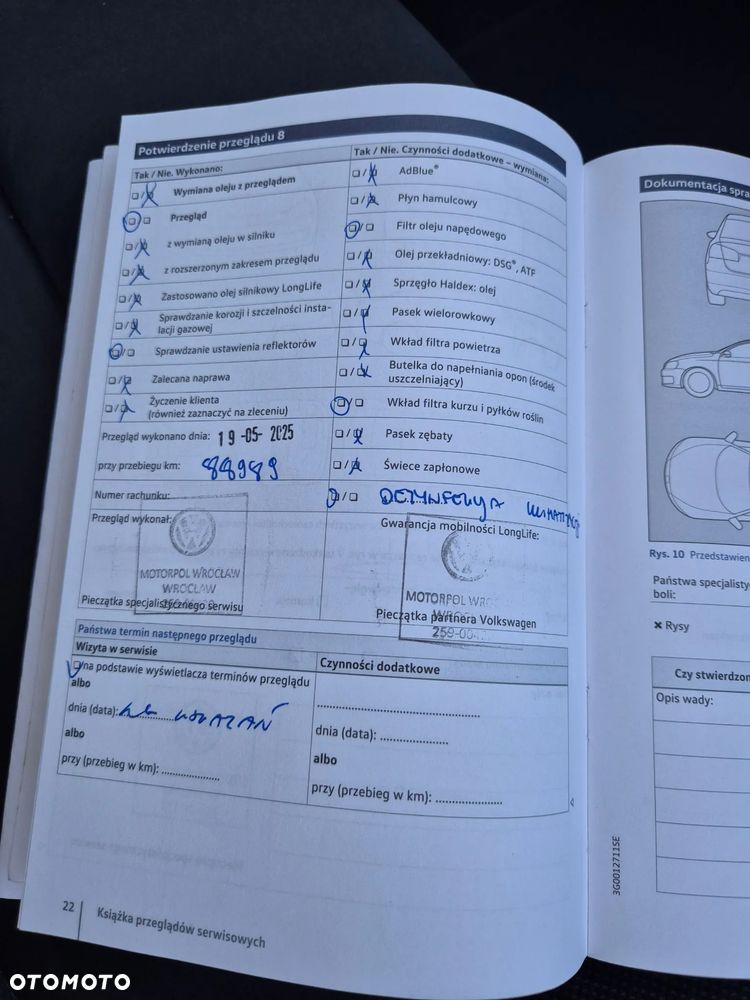 Potwierdzenie przeglądu 8
Tak / Nie. Wykonano:
Wymiana oleju z przeglądem
Przegląd
z wymianą oleju w silniku
z rozszerzonym zakresem przeglądu
Zastosowano olej silnikowy LongLife
Sprawdzanie korozji i szczelności insta-
lacji gazowej
Sprawdzanie ustawienia reflektorów
Zalecana naprawa
Życzenie klienta
(również zaznaczyć na zleceniu)
Przegląd wykonano dnia: 19-05-2025
przy przebiegu km: 88989
Numer rachunku:
Przegląd wykonał:
MOTORPOL WROCŁAW
WROCŁAW
Pieczątka specjalistycznego serwisu
Tak / Nie. Czynności dodatkowe – wymiana:
AdBlue®
Płyn hamulcowy
Filtr oleju napędowego
Olej przekładniowy: DSG®, ATF
Sprzęgło Haldex: olej
Pasek wielorowkowy
Wkład filtra powietrza
Butelka do napełniania opon (środek
uszczelniający)
Wkład filtra kurzu i pyłków roślin
Pasek zębaty
Świece zapłonowe
Gwarancja mobilności LongLife:
MOTORPOL
Pieczątka partnera Volkswagen
Państwa termin następnego przeglądu
Wizyta w serwisie
na podstawie wyświetlacza terminów przeglądu
albo
dnia (data): WSKAZAŃ
albo
przy (przebieg w km): ....................
Czynności dodatkowe
dnia (data): ....................
albo
przy (przebieg w km): ....................
22
Książka przeglądów serwisowych
Dokumentacja spra
Rys. 10 Przedstawien
Państwa specjalisty
boli:
× Rysy
Czy stwierdzon
Opis wady:
3G0012711SE
OTOMOTO